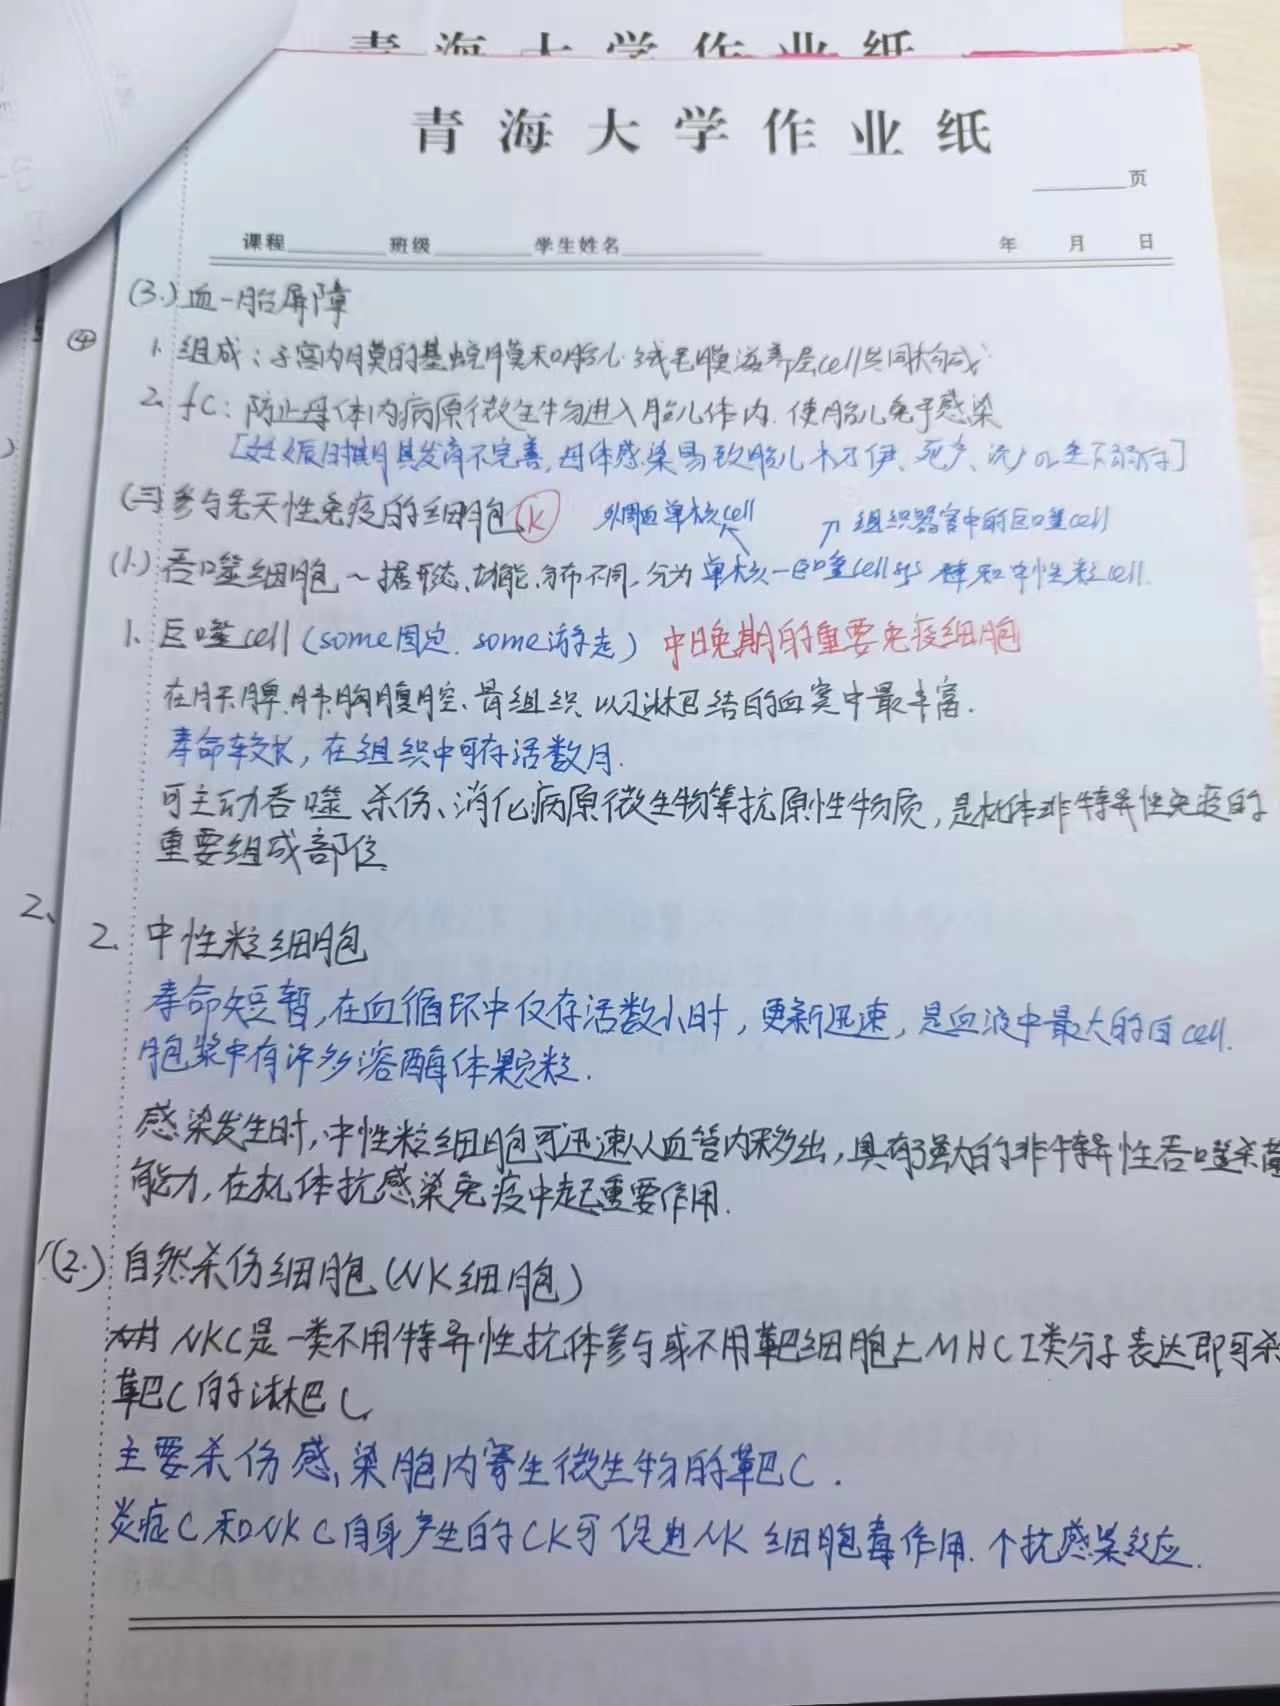 青海大学作业纸
青海大学作业纸
页
课程 班级 学生姓名 年 月 日
(3.) 血一胎屏障
④
1. 组成：子宫内膜的基蜕膜和胎儿绒毛膜滋养层cell共同构成
2. fc：防止母体内病原微生物进入胎儿体内，使胎儿免于感染
[妊娠早期其发育不完善，母体感染易致胎儿木乃伊、死产、流产
(三)参与先天性免疫的细胞 K 外周血单核cell ↗组织器官中的巨噬cell
(1.) 吞噬细胞 ~ 据形态、功能、分布不同，分为单核一巨噬cell 和中性粒cell.
1. 巨噬cell (some固定. some游走) 中晚期的重要免疫细胞
在肝、脾、肺、胸腹腔、骨组织以及淋巴结的血窦中最丰富.
寿命较长，在组织中可存活数月.
可主动吞噬、杀伤、消化病原微生物等抗原性物质，是机体非特异性免疫的
重要组成部位
2、
2. 中性粒细胞
寿命短暂，在血循环中仅存活数小时，更新迅速，是血液中最大的白cell.
胞浆中有许多溶酶体颗粒.
感染发生时，中性粒细胞可迅速从血管内移出，具有强大的非特异性吞噬杀菌
能力，在机体抗感染免疫中起重要作用.
(2.) 自然杀伤细胞(NK细胞)
NKC是一类不用特异性抗体参与或不用靶细胞上MHCI类分子表达即可杀
靶C的淋巴C
主要杀伤感染胞内寄生微生物的靶C.
炎症C和NKC自身产生的CK可促进NK细胞毒作用.个抗感染效应.